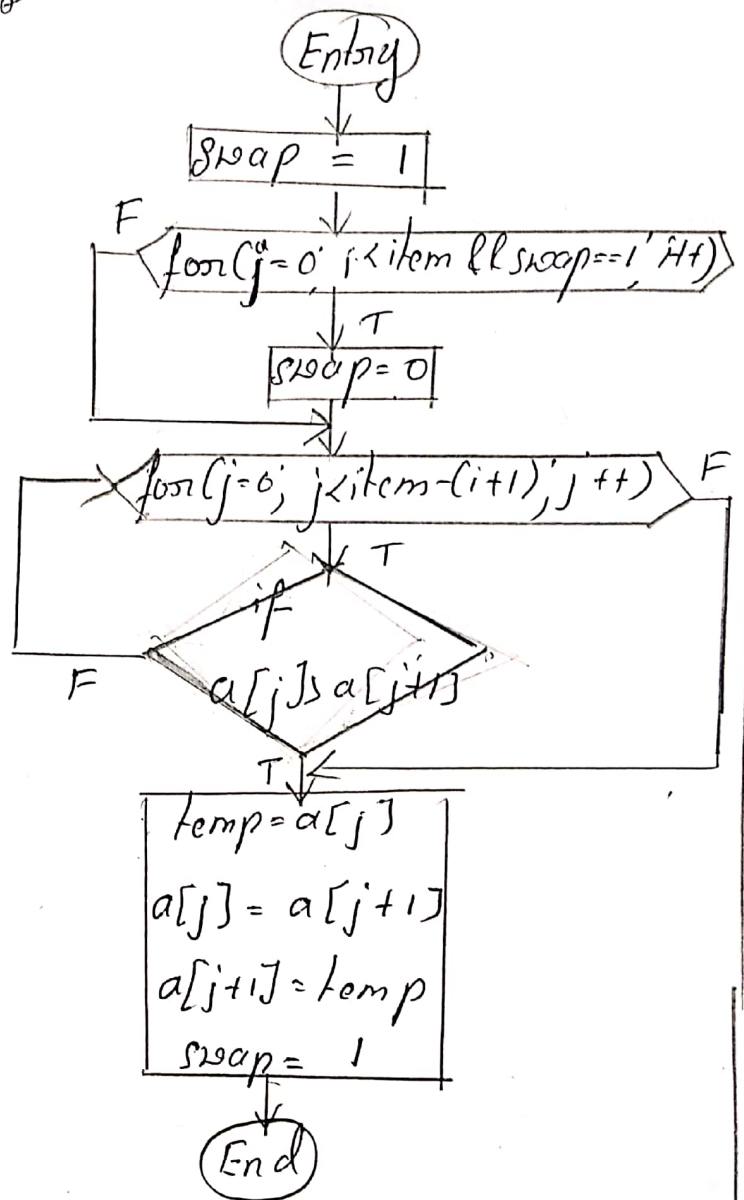 Entry
swap = 1
F
for(j=0; j<item && swap==1; i++)
T
swap=0
for(j=0; j<item-(i+1); j++)
F
T
if
a[j]> a[j+1]
F
T
temp=a[j]
a[j] = a[j+1]
a[j+1]=temp
swap= 1
End